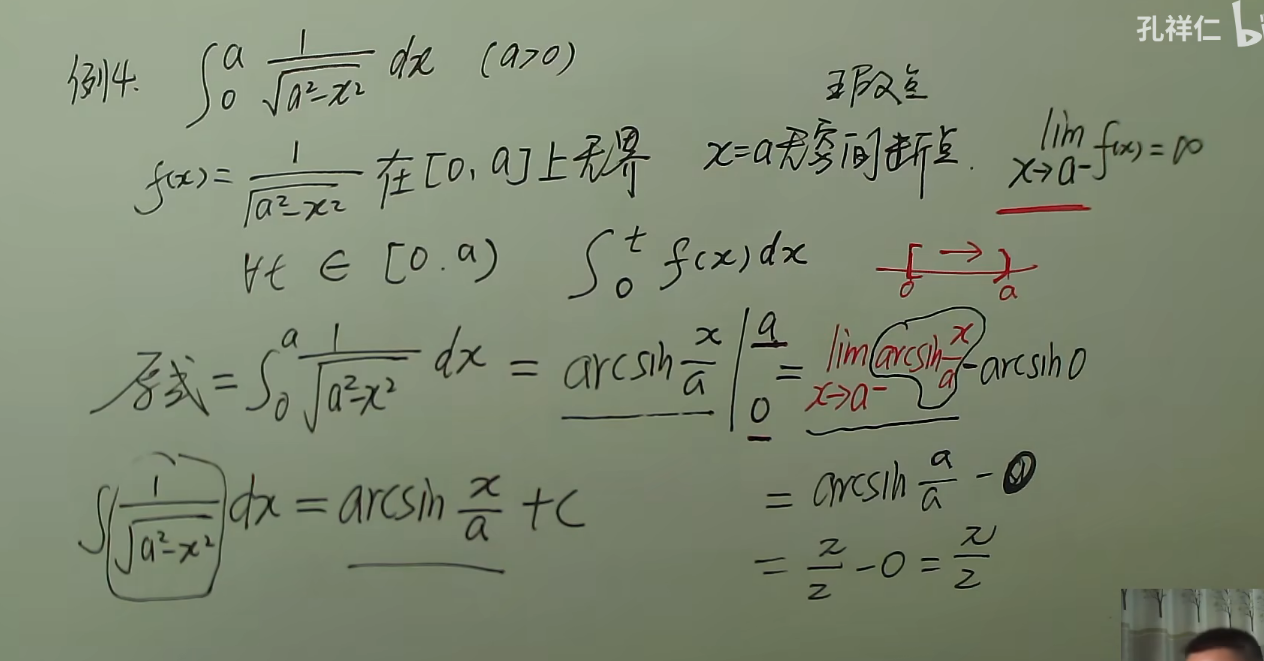 孔祥仁 b
例4. ∫₀ᵃ 1/√(a²-x²) dx (a>0)
瑕点
f(x) = 1/√(a²-x²) 在[0, a]上无界 x=a无穷间断点. lim x→a- f(x) = ∞
∀t ∈ [0.a) ∫₀ᵗ f(x)dx [ → ) 0 a
原式 = ∫₀ᵃ 1/√(a²-x²) dx = arcsin x/a |₀ᵃ = lim x→a- arcsin x/a - arcsin0
∫ 1/√(a²-x²) dx = arcsin x/a + C
= arcsin a/a - 0
= π/2 - 0 = π/2